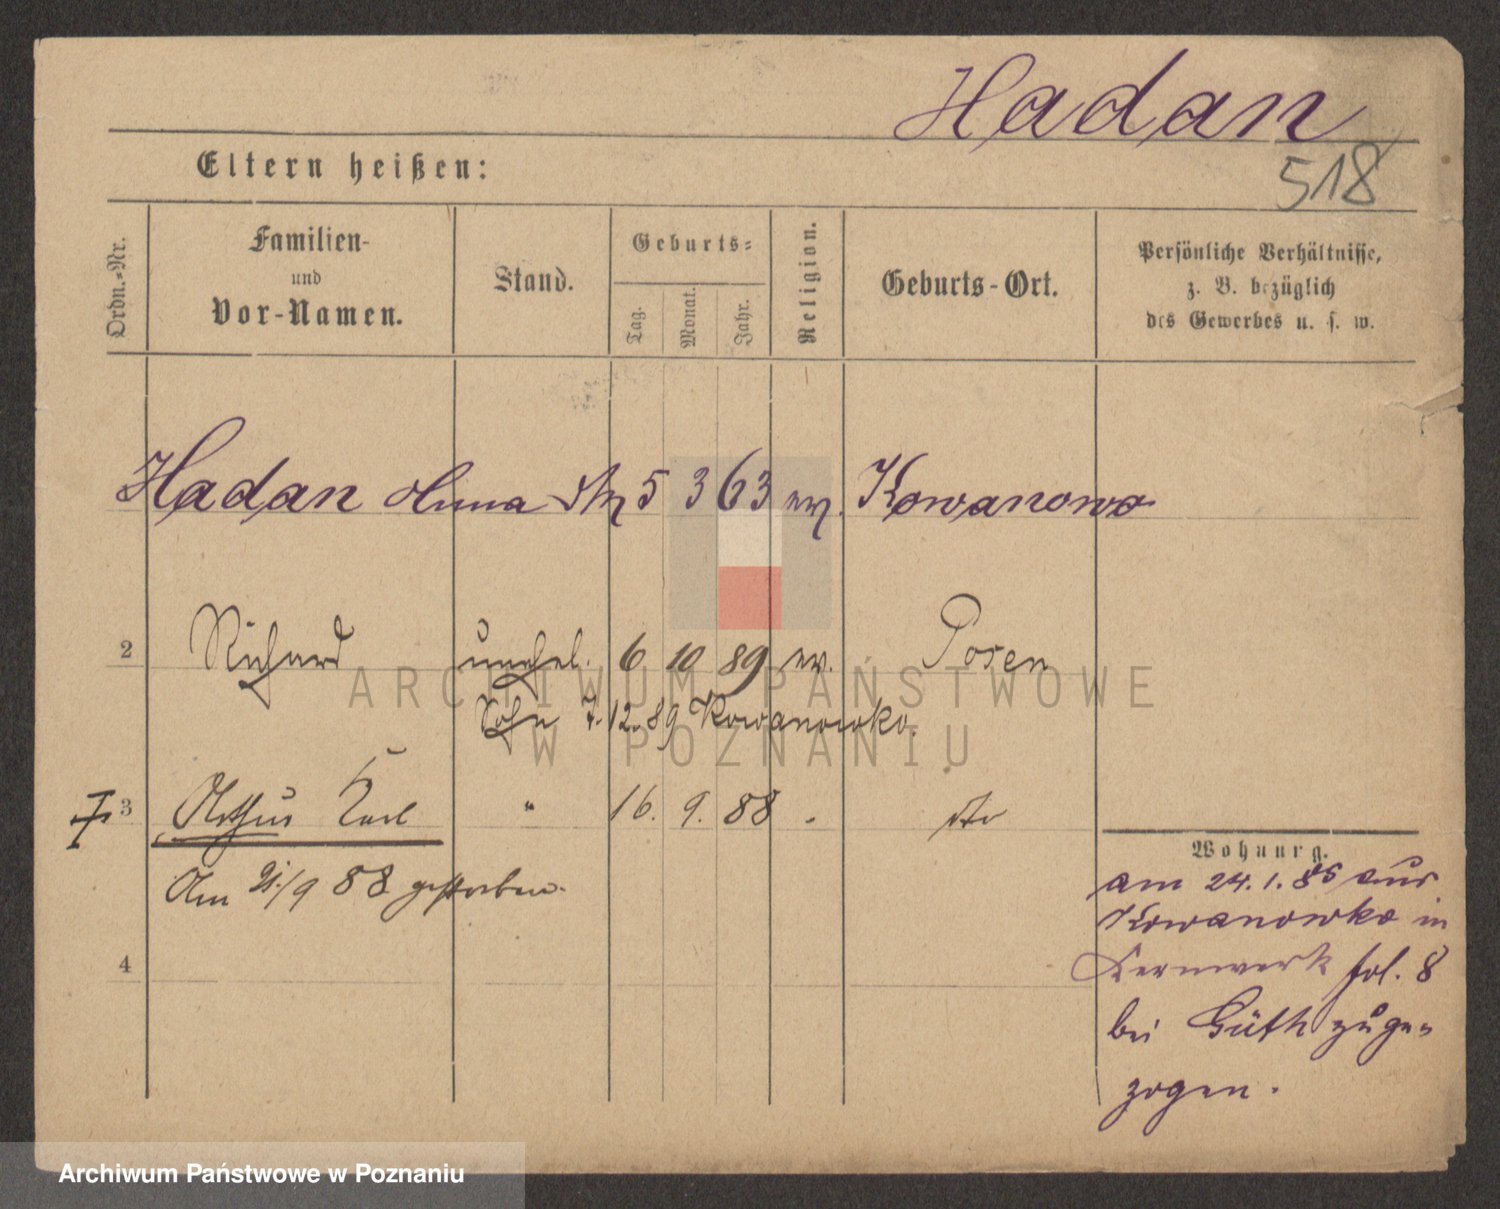 Hadan
518
Eltern heißen:
Ordn.-Nr.
Familien-
und
Vor-Namen.
Stand.
Geburts-
Tag.
Monat.
Jahr.
Religion.
Geburts-Ort.
Persönliche Verhältnisse,
z. B. bezüglich
des Gewerbes u. s. w.
Hadan Anna 5 3 63 ev. Kowanowo
2 Richard unehel. 6 10 89 ev. Posen
Sohn 7.12.89 Kowanowko.
3 Arthur Karl " 16. 9. 88 . dto
Am 21/9 88 gestorben.
4
Wohnung.
am 24.1.86 aus
Kowanowko in
Kernwerk fol. 8
bei Güth zuge=
zogen.
ARCHIWUM PAŃSTWOWE
W POZNANIU
Archiwum Państwowe w Poznaniu